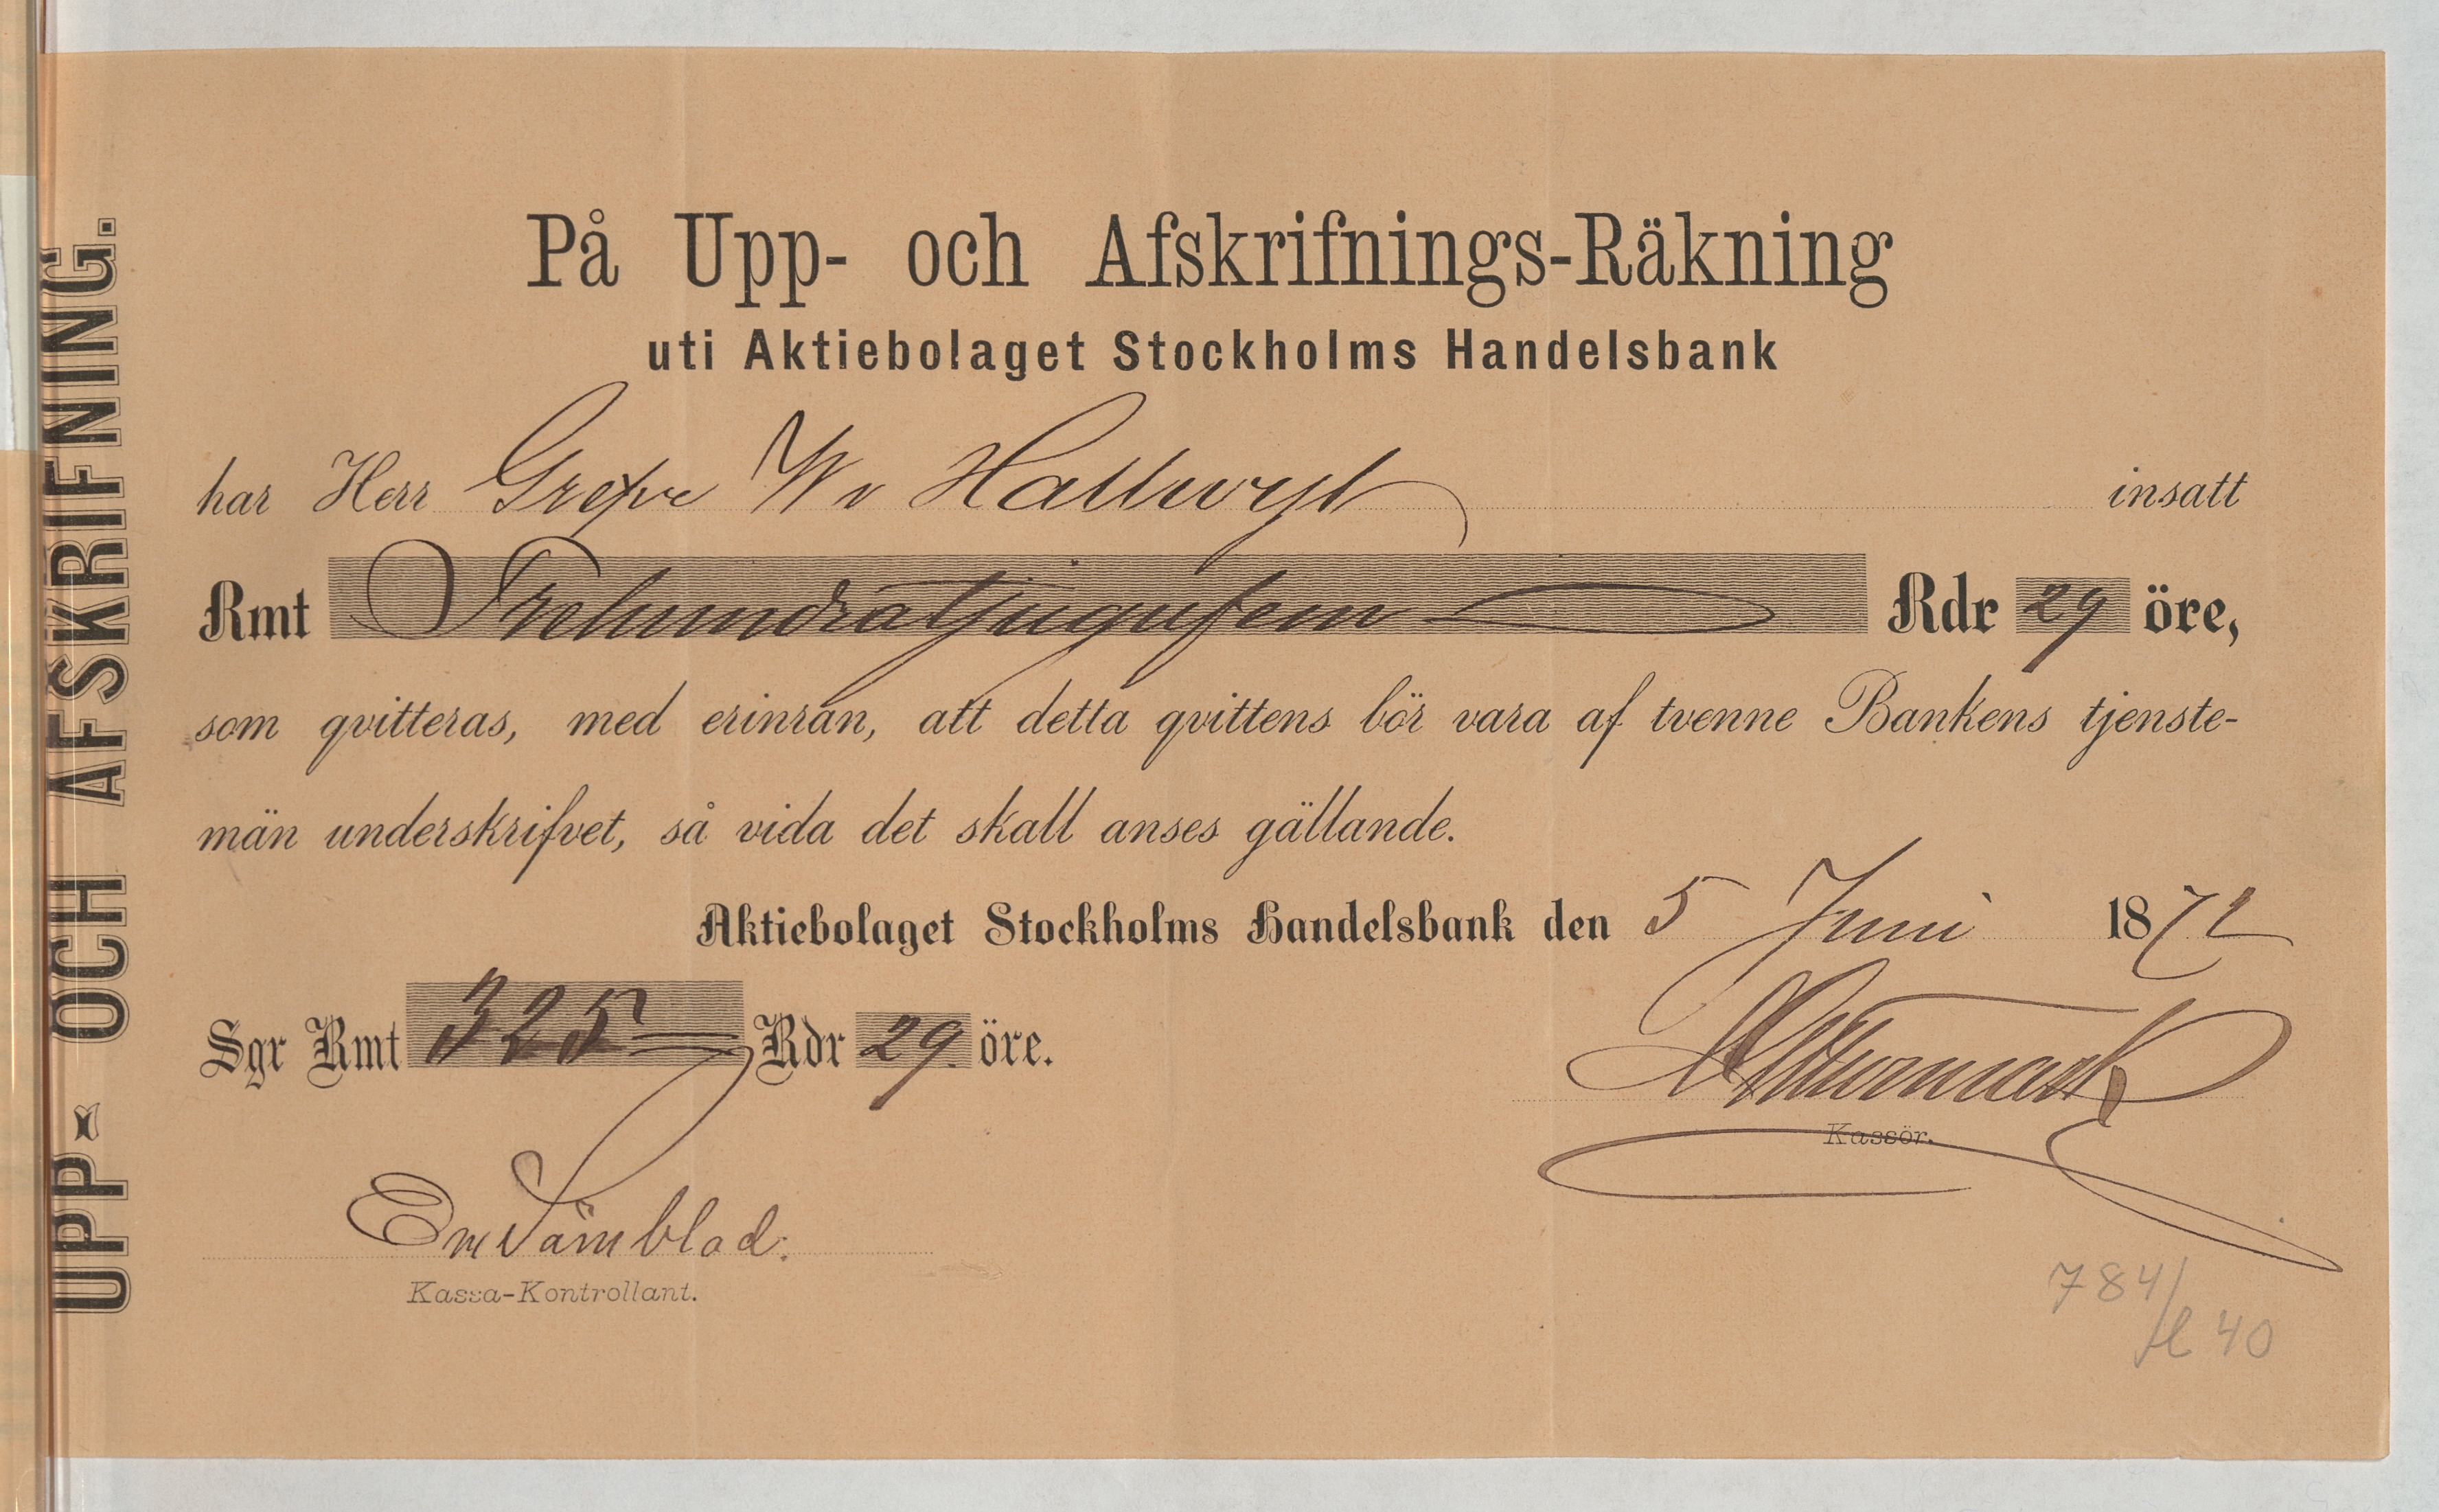 UPP- OCH AFSKRIFNING.
På Upp- och Afskrifnings-Räkning
uti Aktiebolaget Stockholms Handelsbank
har Herr Grefve W v Hallwyl insatt
Rmt Trehundratjugufem Rdr 29 öre,
som qvitteras, med erinran, att detta qvittens bör vara af tvenne Bankens tjenste-
män underskrifvet, så vida det skall anses gällande.
Aktiebolaget Stockholms Handelsbank den 5 Juni 1872
Sgr Rmt 325 Rdr 29 öre.
Kassör.
Kassa-Kontrollant.
784/
40